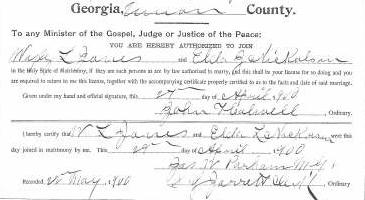 Georgia, Union County.
To any Minister of the Gospel, Judge or Justice of the Peace:
YOU ARE HEREBY AUTHORIZED TO JOIN
L and Nickolson
in the Holy State of Matrimony, if they are such persons as are by law authorized to marry, and this shall be your license for so doing and you
are required to return to me this license, together with the accompanying certificate properly certified as to the fact and date of said marriage.
Given under my hand and official signature, this 27th day of April 1900
John , Ordinary.
I hereby certify that L and were this
day joined in matrimony by me. This 29th day of April 1900
Jas W Parham M.G.
Recorded, May, 1900 Garrett , Ordinary.